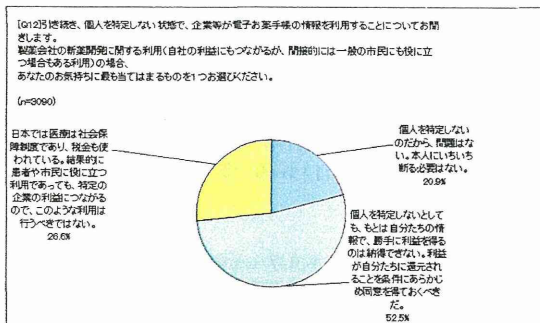 [Q12]引き続き、個人を特定しない状態で、企業等が電子お薬手帳の情報を利用することについてお聞
きします。
製薬会社の新薬開発に関する利用(自社の利益にもつながるが、間接的には一般の市民にも役に立
つ場合もある利用)の場合、
あなたのお気持ちに最も当てはまるものを1つお選びください。
(n=3090)
日本では医療は社会保
障制度であり、税金も使
われている。結果的に
患者や市民に役に立つ
利用であっても、特定の
企業の利益につながる
ので、このような利用は
行うべきではない。
26.6%
個人を特定しない
のだから、問題はな
い。本人にいちいち
断る必要はない。
20.9%
個人を特定しないとして
も、もとは自分たちの情
報で、勝手に利益を得る
のは納得できない。利益
が自分たちに還元され
ることを条件にあらかじ
め同意を得ておくべき
だ。
52.5%